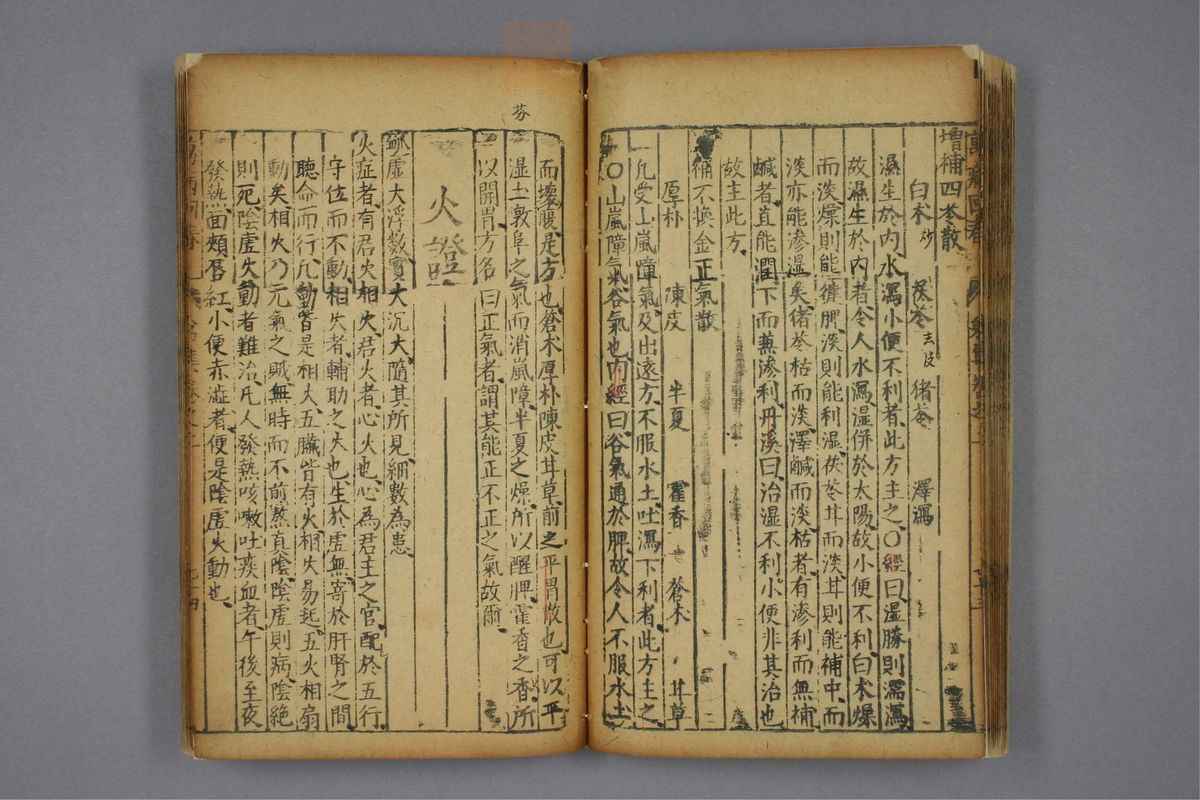 增補四本散
白朮炒 茯苓去皮 猪苓 澤瀉
濕生於內水瀉小便不利者此方主之〇經曰濕勝則濡瀉
故濕生於內者令人水瀉濕併於太陽故小便不利白朮燥
而淡燥則能健脾淡則能利濕茯苓甘而淡甘則能補中而
淡亦能滲濕矣猪苓枯而淡澤鹹而淡枯者有滲利而無補
鹹者直能潤下而兼滲利丹溪曰治濕不利小便非其治也
故主此方
補不換金正氣散
厚朴 陳皮 半夏 藿香 蒼朮 甘草
凡受山嵐瘴氣及出遠方不服水土吐瀉下利者此方主之
〇山嵐瘴氣谷氣也內經曰谷氣通於脾故令人不服水土
芬
而壞脾是方也蒼朮厚朴陳皮甘草前之平胃散也可以平
濕土敦阜之氣而消嵐瘴半夏之燥所以醒脾藿香之香所
以開胃方名曰正氣者謂其能正不正之氣故爾
火證
脉虛大浮數實大沉大隨其所見細數為患
火症者有君火相火君火者心火也心為君主之官配於五行
守位而不動相火者輔助之火也生於虛無寄於肝腎之間
聽命而行凡動皆是相火五臟皆有火相火易起五火相扇
動矣相火乃元氣之賊無時而不煎熬真陰陰虛則病陰絕
則死陰虛火動者難治凡人發熱咳嗽吐痰血者午後至夜
發熱面頰唇紅小便赤澁者便是陰虛火動也